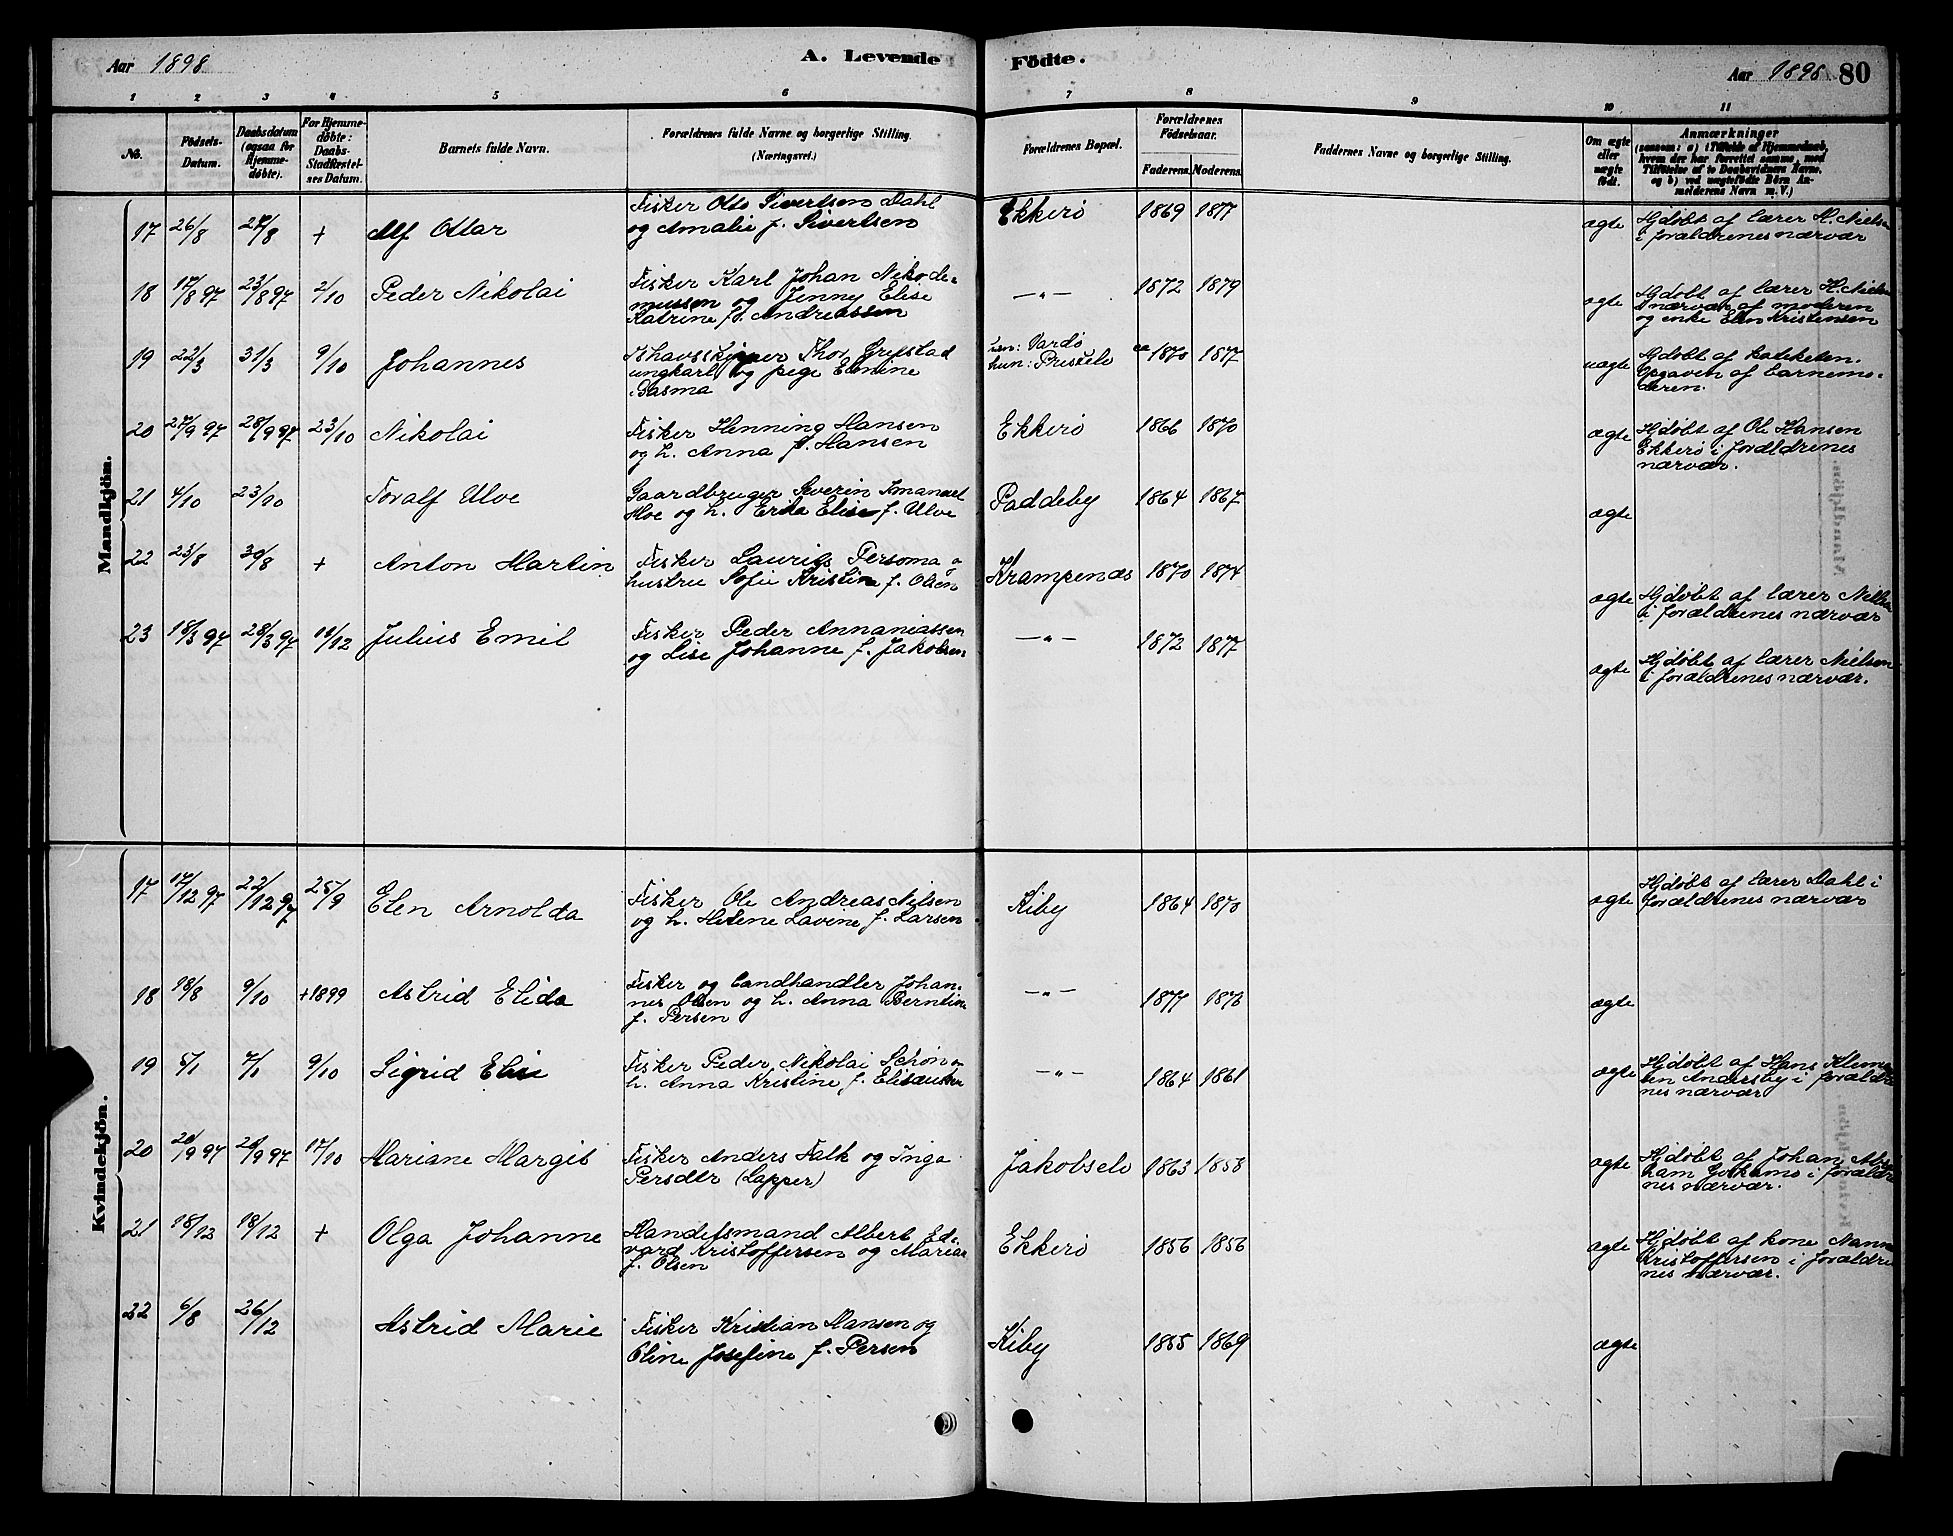 Aar 1898
A. Levende Fødte.
Aar 1898 80
1 2 3 4 5 6 7 8 9 10 11
No. Fødsels-Datum. Daabsdatum (ogsaa for Hjemmedøbte). For Hjemmedøbte: Daabs-Stadfæstelses Datum. Barnets fulde Navn. Forældrenes fulde Navne og borgerlige Stilling. (Næringsvei.) Forældrenes Bopæl. Forældrenes Fødselsaar. Faderens. Moderens. Faddernes Navne og borgerlige Stilling. Om ægte eller uægte født. Anmærkninger (saasom: a) i Tilfælde af Hjemmedaab, hvem der har forrettet samme, med Tilføielse af to Daabsvidners Navne, og b) ved uægtefødte Børn Anmelderens Navn m. V.)
Mandkjøn.
17 26/8 27/8 + Alf Ottar
Fisker Otto Sivertsen Dahl
og Amalie f. Sivertsen
Ekkerø 1869 1877 ægte
Hjdøbt af lærer H. Nielsen
i forældrenes nærvær
18 17/8 97 23/8 97 2/10 Peder Nikolai
Fisker Karl Johan Nikode-
mussen og Jenny Elise
Katrine f. Andreassen
—„— 1872 1879 ægte
Hjdøbt af lærer H. Nielsen
i nærvær af moderen
og enke Elen Kristensen
19 22/3 31/3 9/10 Johannes
Ishavsskipper Thor Grifstad
ungkarl og pige Elmine
Gasma
han: Vardø
hun: Pristele
ca 1870 1877 uægte
Hjdøbt af kateketen.
Opgaven af barnemo-
deren.
20 27/9 97 28/9 97 23/10 Nikolai
Fisker Henning Hansen
og h. Anna f. Hansen
Ekkerø 1866 1870 ægte
Hjdøbt af Ole Hansen
Ekkerø i forældrenes
nærvær.
21 4/10 23/10 Toralf Ulve
Gaardbruger Severin Imanuel
Moe og h. Erika Elise f. Ulve
Paddeby 1864 1867 ægte
22 23/8 30/8 + Anton Martin
Fisker Laurits Persoma og
hustru Sofie Kristine f. Olsen
Krampenæs 1870 1874 ægte
Hjdøbt af lærer Nielsen
i forældrenes nærvær
23 18/3 97 28/3 97 11/12 Julius Emil
Fisker Peder Annaniassen
og Lise Johanne f. Jakobsen
—„— 1872 1877 ægte
Hjdøbt af lærer Nielsen
i forældrenes nærvær.
Kvindekjøn.
17 17/12 97 22/12 97 25/9 Elen Arnolda
Fisker Ole Andreas Nilsen
og h. Helene Lavine f. Larsen
Kiby 1864 1870 ægte
Hjdøbt af lærer Dahl i
forældrenes nærvær
18 18/8 9/10 +1899 Astrid Elida
Fisker og landhandler Johan-
nes Olsen og h. Anna Berntine
f. Persen
—„— 1877 1876 ægte
19 5/1 7/1 9/10 Sigrid Elise
Fisker Peder Nikolai Schøn og
h. Anna Kristine f. Elisæussen
—„— 1864 1861 ægte
Hjdøbt af Hans Klemet-
sen Andersby i forældre
nes nærvær
20 20/9 97 29/9 97 17/10 Mariane Margit
Fisker Anders Falk og Inga
Persdtr (Lapper)
Jakobselv 1863 1858 ægte
Hjdøbt af Johan Abra
ham i forældre
nes nærvær.
21 18/12 18/12 + Olga Johanne
Handelsmand Albert Ed-
vard Kristoffersen og Marian
f. Olsen
Ekkerø 1856 1856 ægte
Hjdøbt af kone Nanna
Kristoffersen i forældre
nes nærvær.
22 6/8 26/12 Astrid Marie
Fisker Kristian Hansen og
Oline Josefine f. Persen
Kiby 1865 1869 ægte